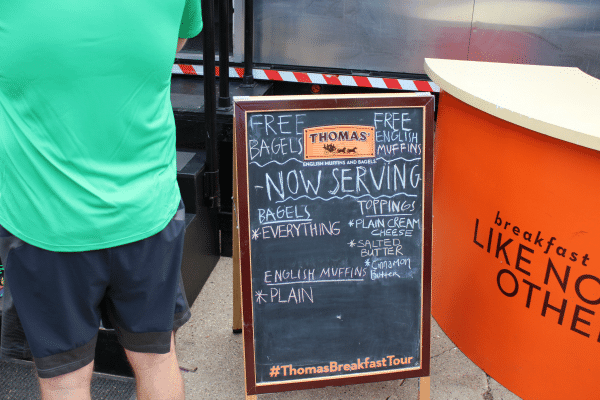 FREE
BAGELS
THOMAS'
ENGLISH MUFFINS AND BAGELS
FREE
ENGLISH
MUFFINS
-NOW SERVING
BAGELS
*EVERYTHING
ENGLISH MUFFINS
*PLAIN
TOPPINGS
*PLAIN CREAM
CHEESE
*SALTED
BUTTER
*Cinnamon
Butter
#ThomasBreakfastTour
breakfast
LIKE NO
OTHE